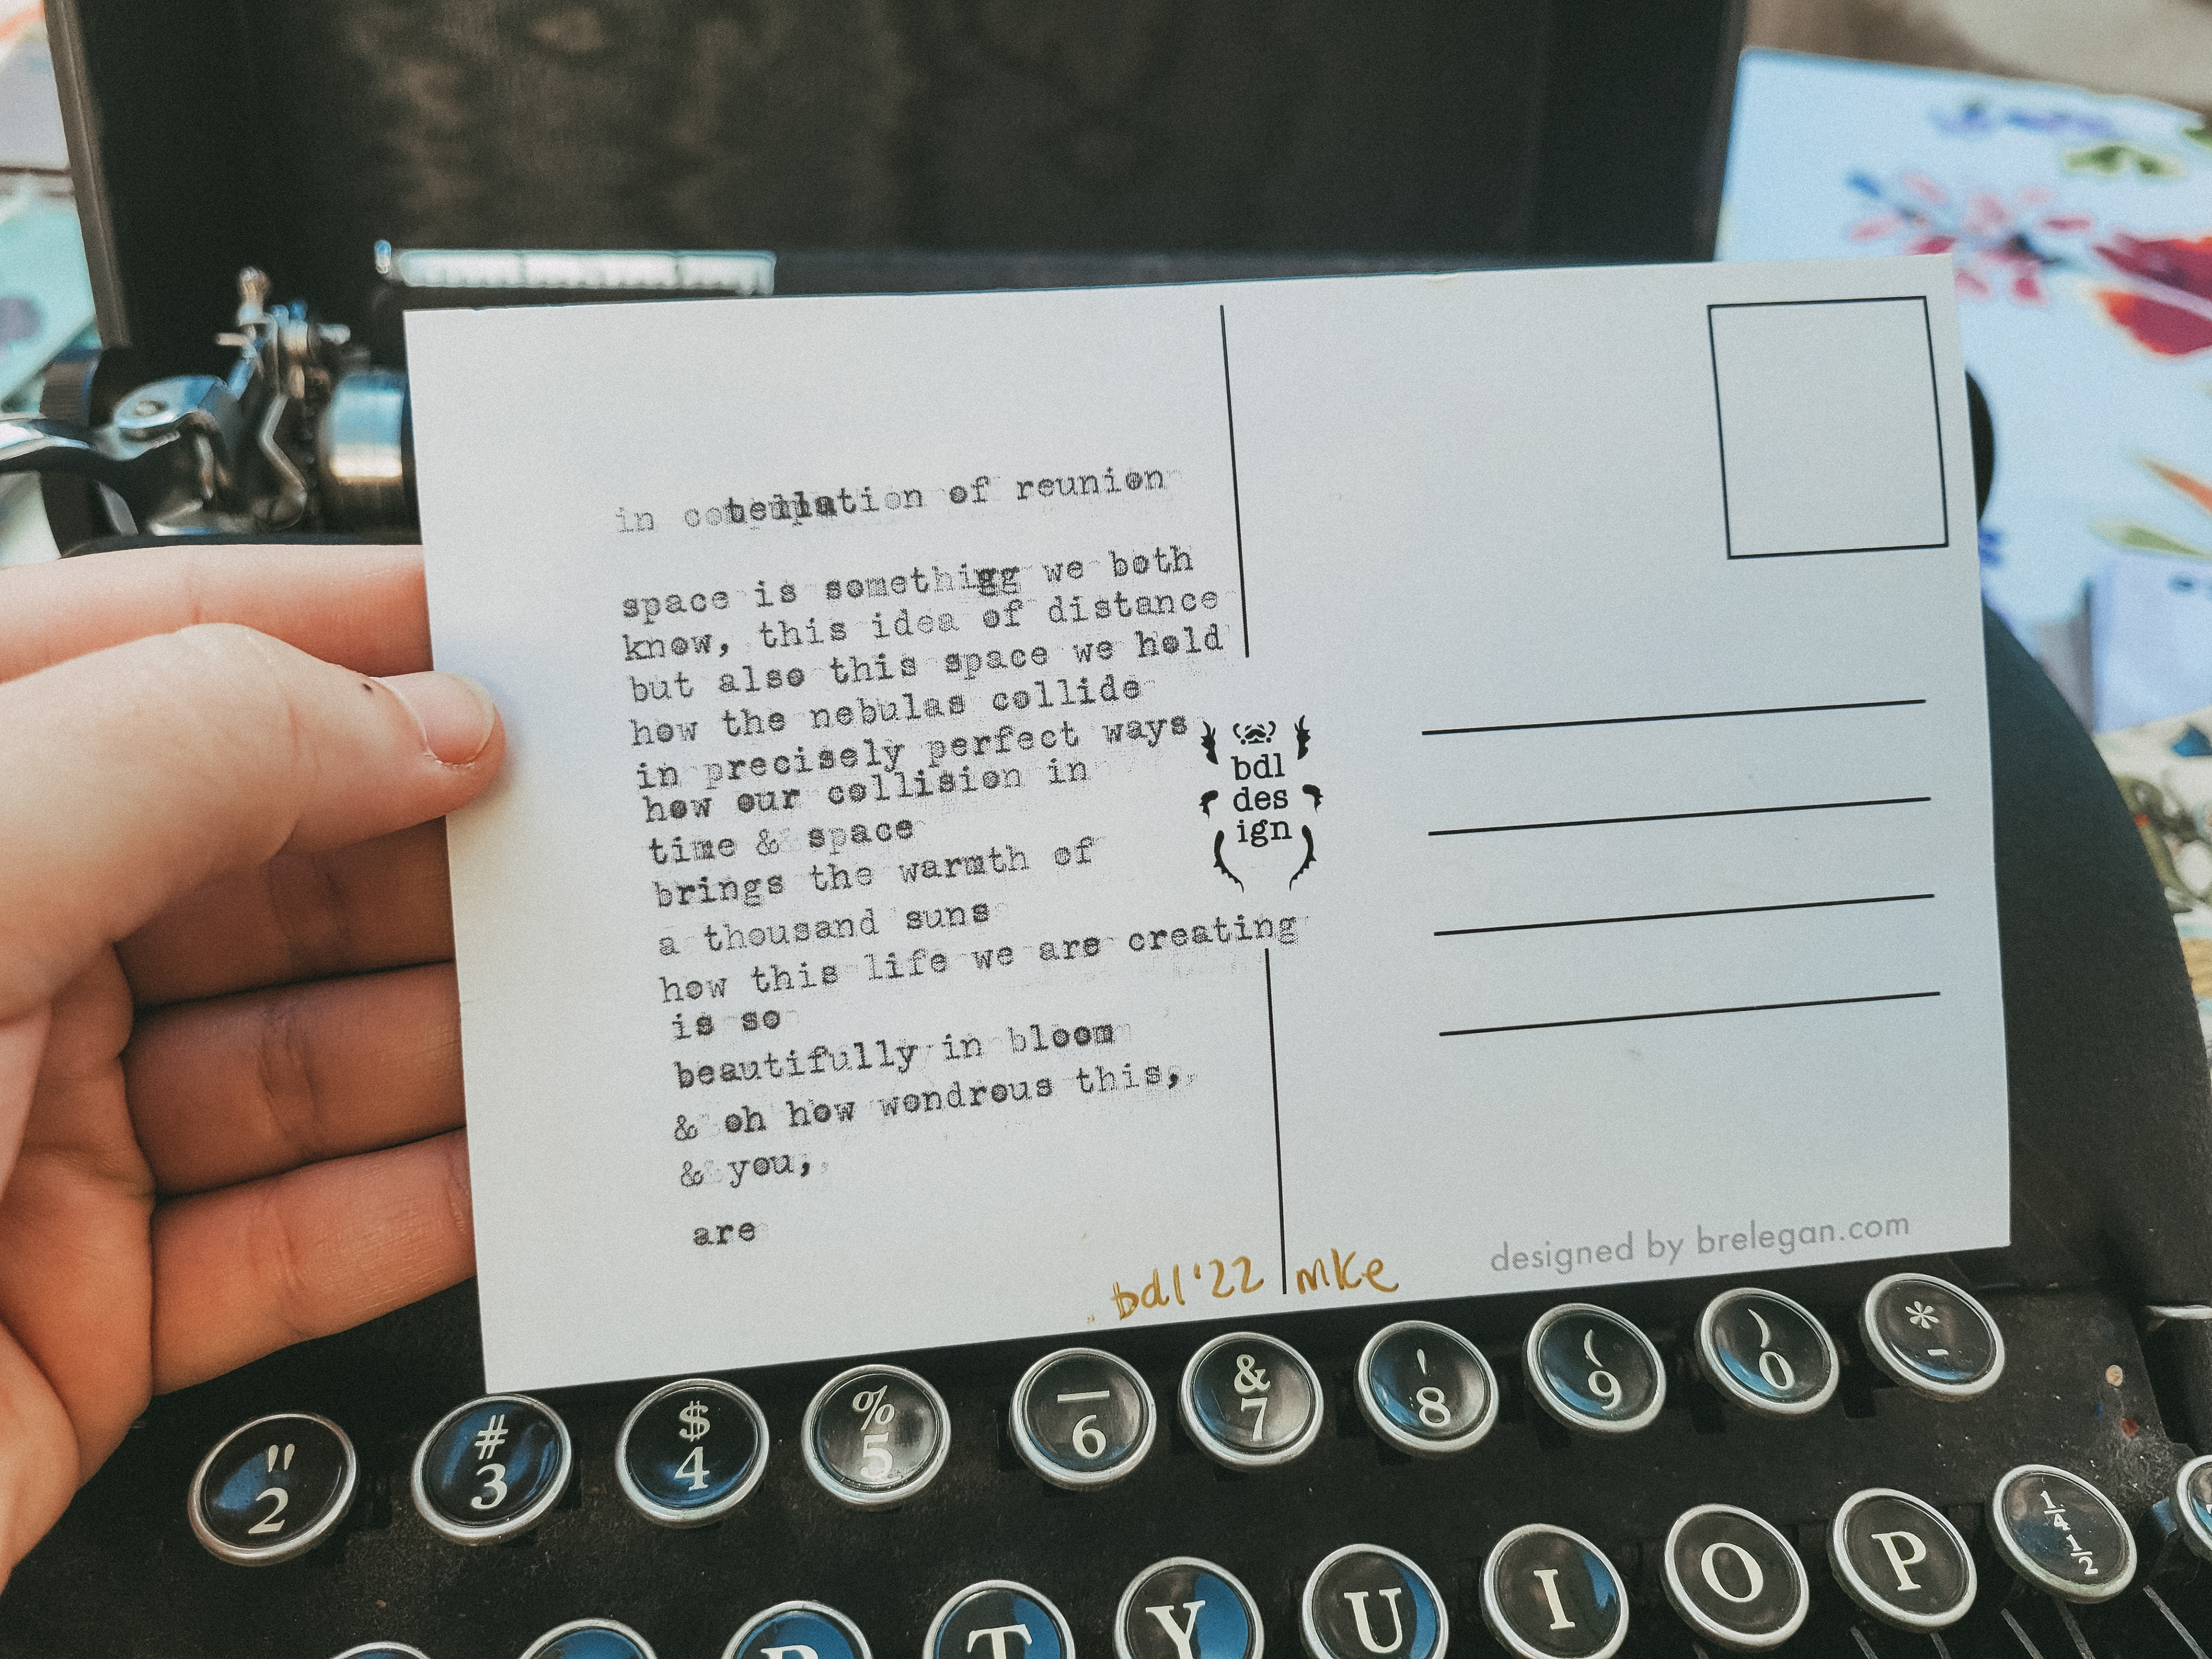 in of reunion
space is somethigg we both
know, this idea of distance
but also this space we hold
how the nebulas collide
in precisely perfect ways
how our collision in
time & space
brings the warmth of
a thousand suns
how this life we are creating
is so
beautifully in bloom
& oh how wondrous this,
& you,
are
bdl
des
ign
bdl'22 mke
designed by brelegan.com
" 2
# 3
$ 4
% 5
_ 6
& 7
' 8
( 9
) 0
* -
R T Y U I O P 1/4 1/2